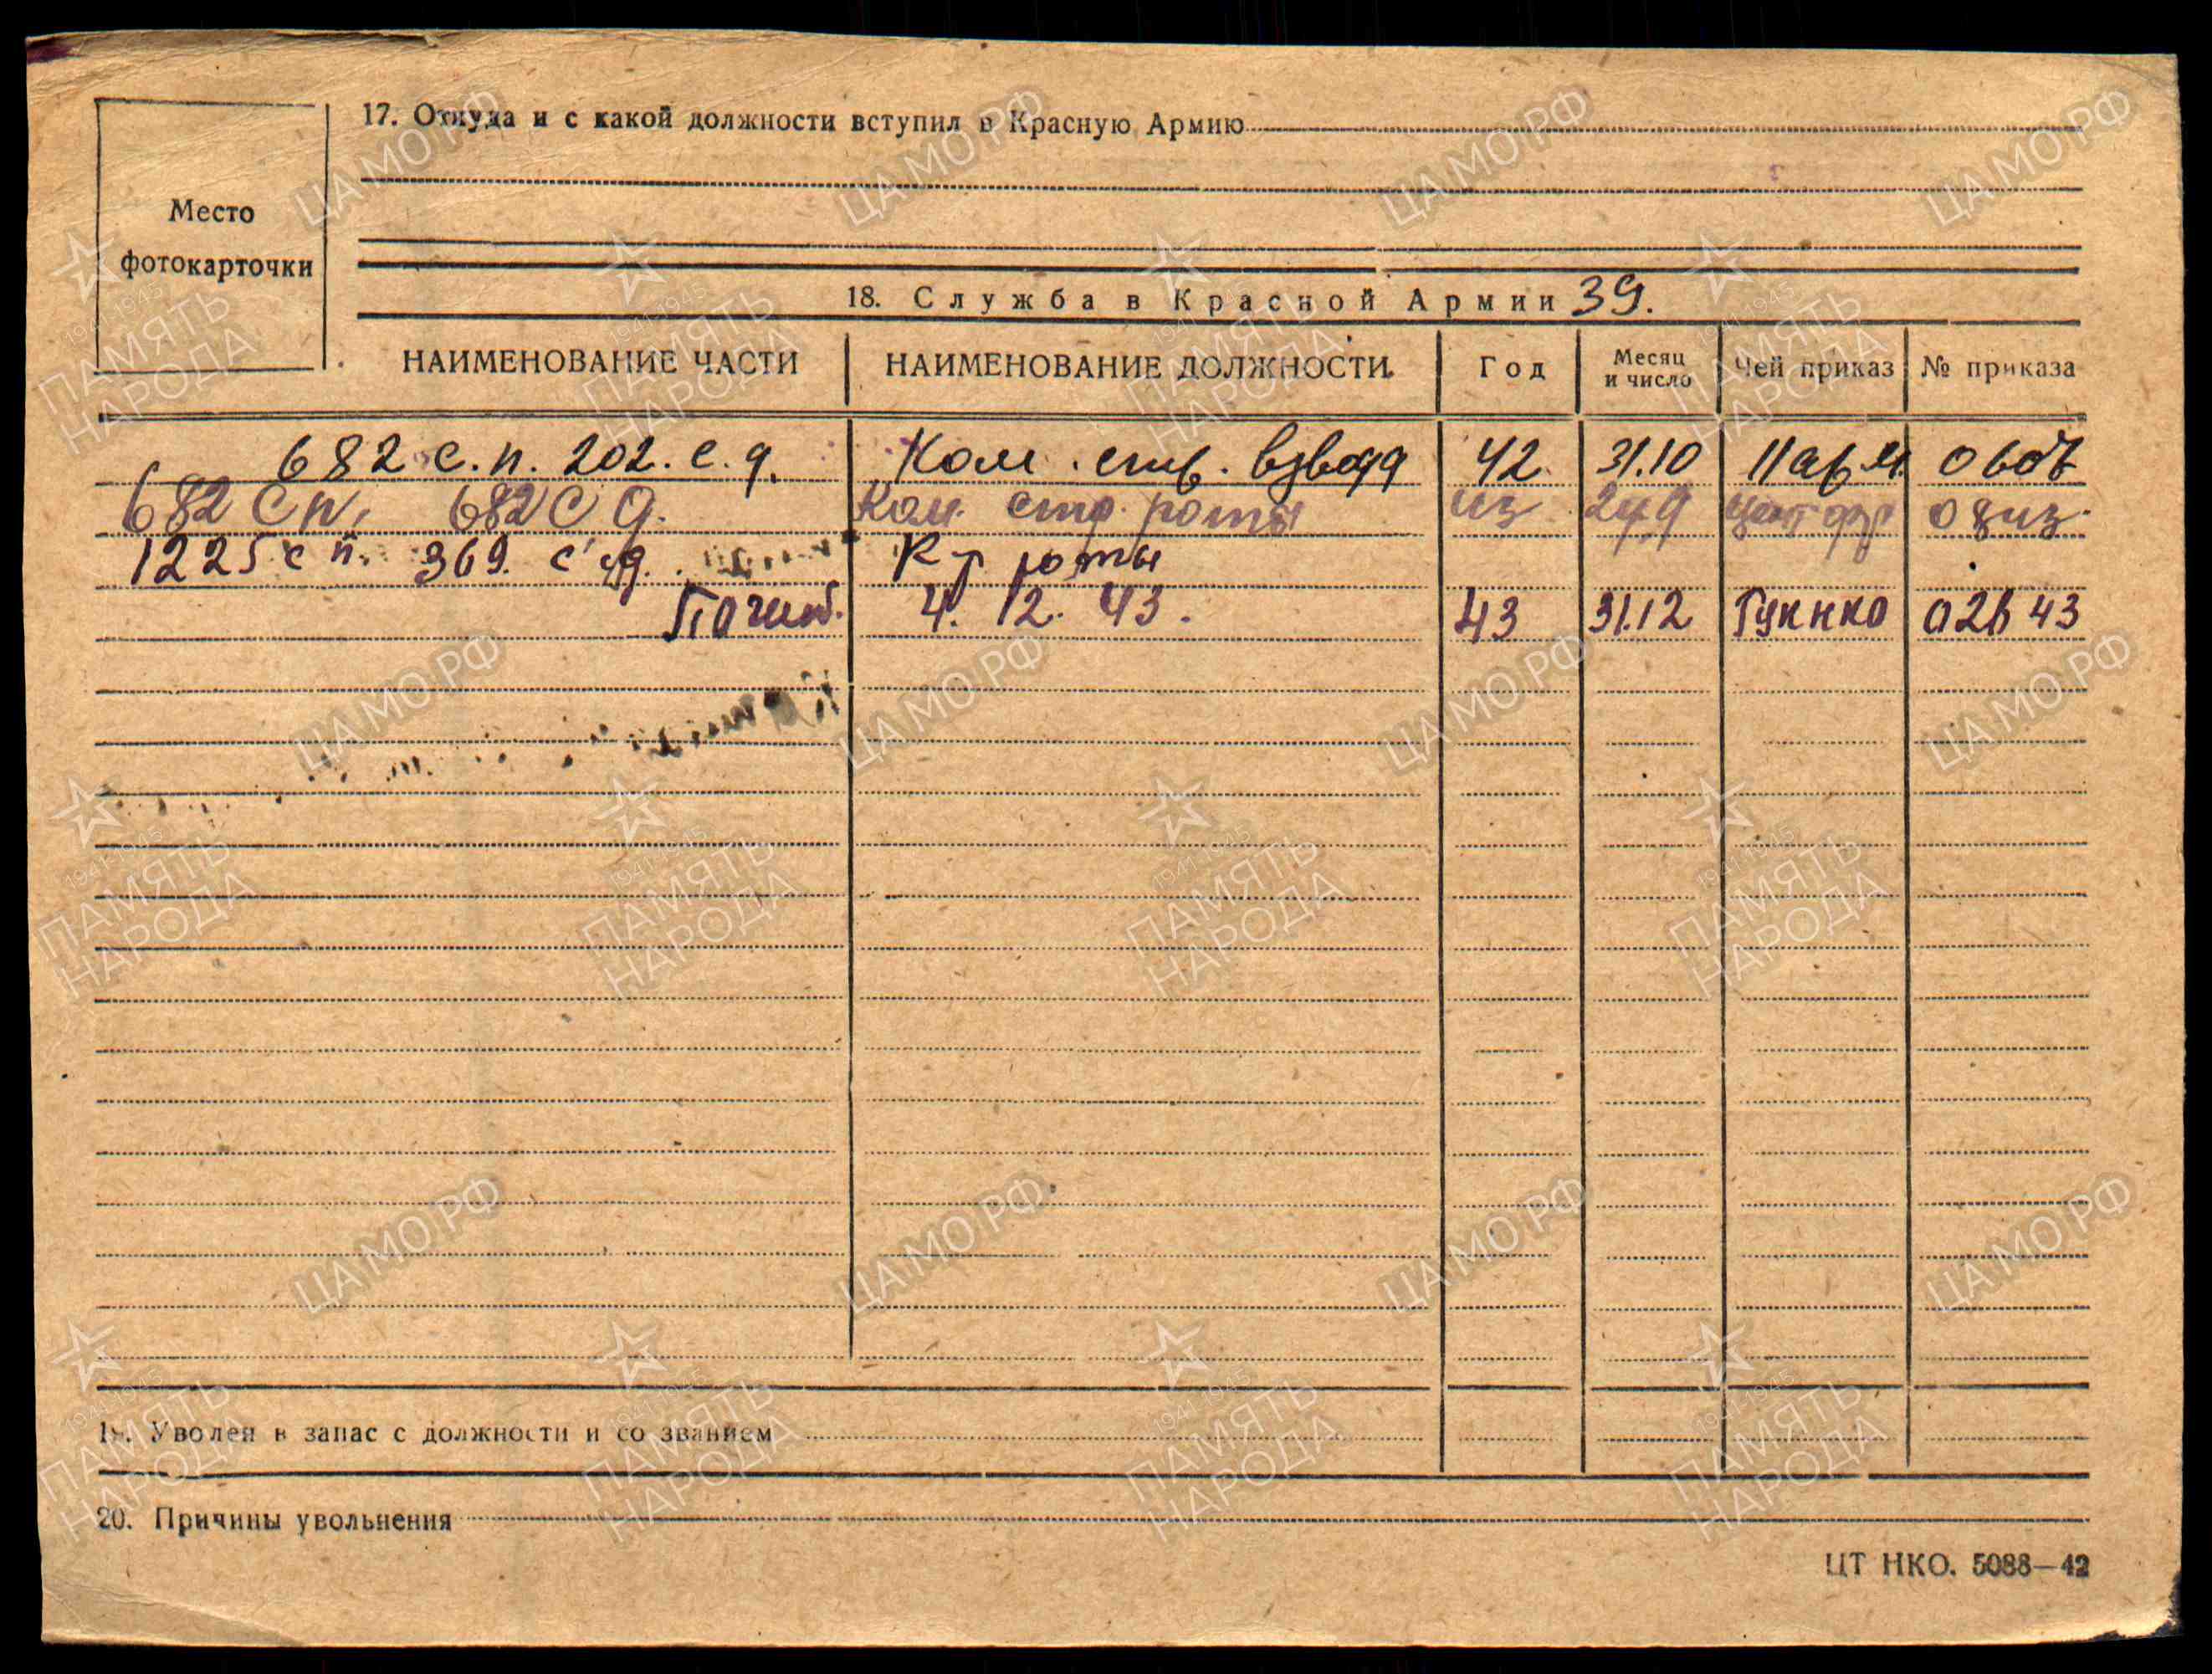 17. Откуда и с какой должности вступил в Красную Армию
Место
фотокарточки
18. Служба в Красной Армии 39.
НАИМЕНОВАНИЕ ЧАСТИ НАИМЕНОВАНИЕ ДОЛЖНОСТИ Год Месяц и число Чей приказ № приказа
682 с.п. 202. с.д. Ком. стр. взвода 42 31.10 11 арм.
682 сп, 682 с д. Ком. стр. роты 24.9
1225 с п. 369. с.д. К-р роты
Погиб. 4. 12. 43. 43 31.12 02643
19. Уволен в запас с должности и со званием
20. Причины увольнения
ЦТ НКО. 5088—42
ЦАМО РФ
1941-1945
ПАМЯТЬ
НАРОДА